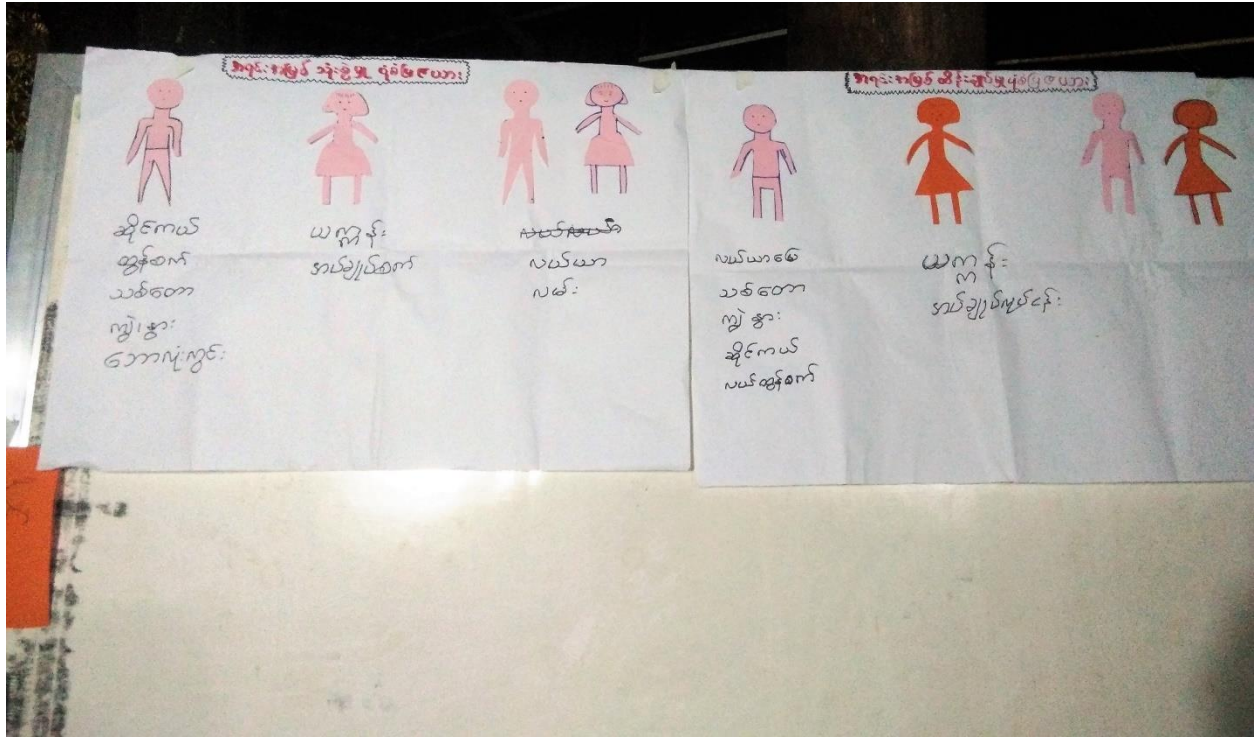 အရင်းအမြစ် သုံးစွဲမှု ပုံစံပြဇယား
ဆိုင်ကယ်
ထွန်စက်
သစ်တော
ကျွဲ၊ နွား
ဘောလုံးကွင်း
ယက္ကန်း
အပ်ချုပ်စက်
လယ်ယာ
လမ်း
အရင်းအမြစ် ထိန်းချုပ်မှုပုံစံပြဇယား
လယ်ယာမြေ
သစ်တော
ကျွဲ နွား
ဆိုင်ကယ်
လယ်ထွန်စက်
ယက္ကန်း
အပ်ချုပ်လုပ်ငန်း